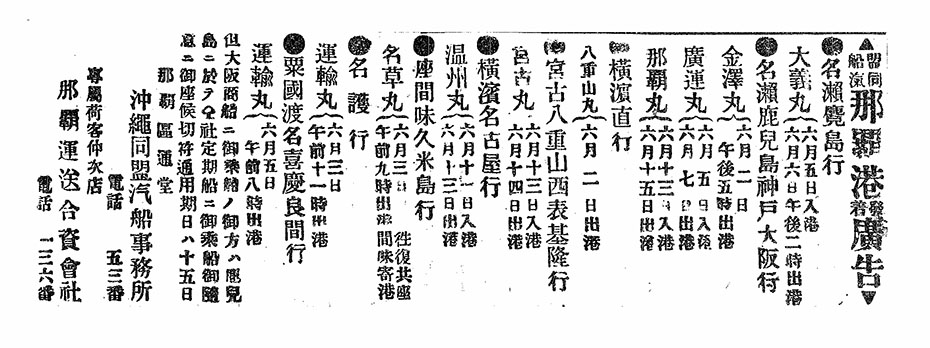 ▲同盟汽船那覇港發着廣告▼
●名瀨鹿兒島行
大義丸 六月五日入港 六月六日午後二時出港
●名瀨鹿兒島神戸大阪行
金澤丸 六月二日 午後五時出港
廣運丸 六月五日入港 六月七日出港
那覇丸 六月十三日入港 六月十五日出港
●橫濱直行
八重山丸 六月二日出港
●宮古八重山西表基隆行
宮古丸 六月十三日入港 六月十四日出港
●橫濱名古屋行
温州丸 六月十一日入港 六月十三日出港
●座間味久米島行
名草丸 六月三日 午前九時出港 徃復共座間味寄港
●名護行
運輸丸 六月三日 午前十一時出港
●粟國渡名喜慶良間行
運輸丸 六月五日 午前八時出港
但大阪商船ニ御乘船ノ御方ハ鹿兒
島ニ於テ仝社定期船ニ御乘船御隨
意ニ御座候切符通用期日ハ十五日
那覇區通堂
沖繩同盟汽船事務所
電話 五三番
專屬荷客仲次店
那覇運送合資會社
電話 一三六番